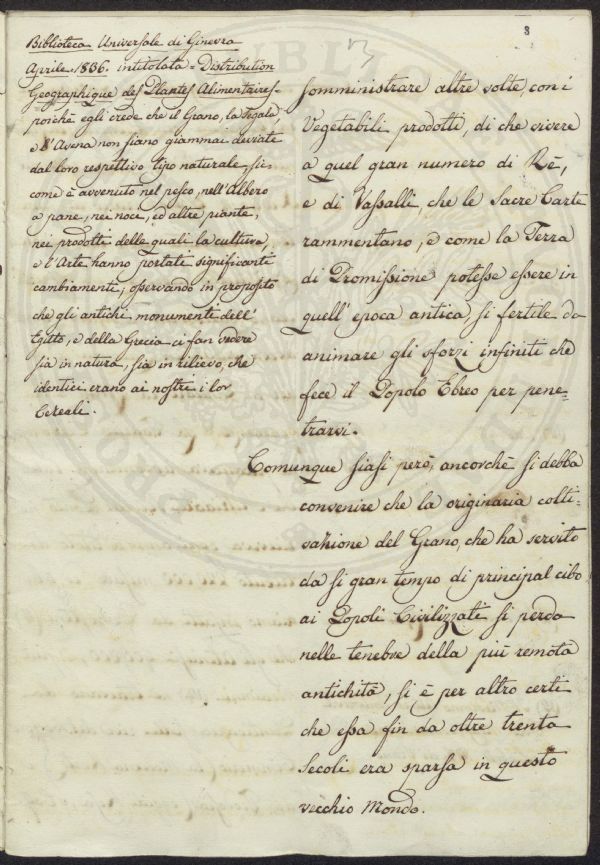 3
Biblioteca Universale di Ginevra
Aprile 1836. intitolata = Distribution
Geographique des Plantes Alimentaires =
poichè egli crede che il Grano, la Segale
e l'Avena non siano giammai deviate
dal loro respettivo tipo naturale sic-
come è avvenuto nel pesco, nell'Albero
a pane, nei noci, ed altre piante,
nei prodotti delle quali la cultura,
e l'Arte hanno portati significanti
cambiamenti; osservando in proposito
che gli antichi monumenti dell'
Egitto, e della Grecia ci fan vedere
sia in natura, sia in rilievo, che
identici erano ai nostri i lor
Cereali.
somministrare altre volte, con i
Vegetabili prodotti, di che vivere
a quel gran numero di Rè,
e di Vassalli, che le Sacre Carte
rammentano, e come la Terra
di Promissione potesse essere in
quell'epoca antica, si fertile da
animare gli sforzi infiniti che
fece il Popolo Ebreo per pene-
trarvi.
Comunque siasi però, ancorchè si debba
convenire che la originaria colti-
vazione del Grano, che ha servito
da si gran tempo di principal cibo
ai Popoli Civilizzati si perda
nelle tenebre della più remota
antichità, si è per altro certi
che essa fin da oltre trenta
Secoli era sparsa in questo
vecchio Mondo.